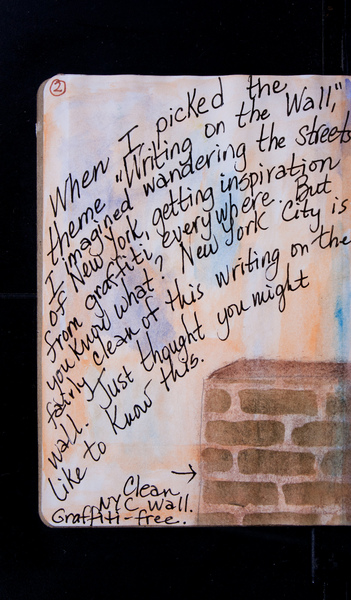 2
When I picked the
theme "Writing on the Wall,"
I imagined wandering the streets
of New York, getting inspiration
from graffiti everywhere. But
you know what? New York City is
fairly clean of this writing on the
wall. Just thought you might
like to know this.
Clean
NYC Wall.
Graffiti-free.